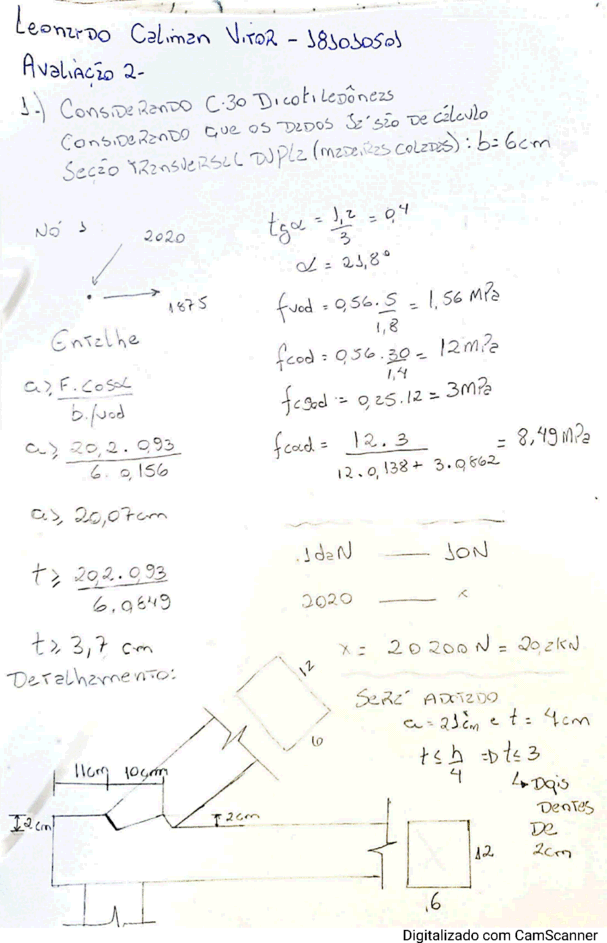 Leonardo Caliman Vitor - 181010501
Avaliação 2-
1.) Considerando C-30 Dicotiledôneas
Considerando que os dados já são de cálculo
Seção transversal dupla (madeiras coladas): b=6cm
Nó 1
2020
1875
tgα = 1,2/3 = 0,4
α = 21,8°
fvod = 0,56 . 5/1,8 = 1,56 MPa
fcod = 0,56 . 30/1,4 = 12 MPa
fc90d = 0,25 . 12 = 3 MPa
fcαd = 12 . 3/12 . 0,138 + 3 . 0,862 = 8,49 MPa
Entalhe
a ≥ F . cosα/b . fvod
a ≥ 20,2 . 0,93/6 . 0,156
a ≥ 20,07cm
t ≥ 20,2 . 0,93/6 . 0,849
t ≥ 3,7 cm
1daN — 10N
2020 — x
x = 20200N = 20,2kN
Detalhamento:
Será adotado
a = 21cm e t = 4cm
t ≤ h/4 => t ≤ 3
↳ Dois
dentes
de
2cm
12
6
11cm 10cm
2cm
2cm
12
6
Digitalizado com CamScanner